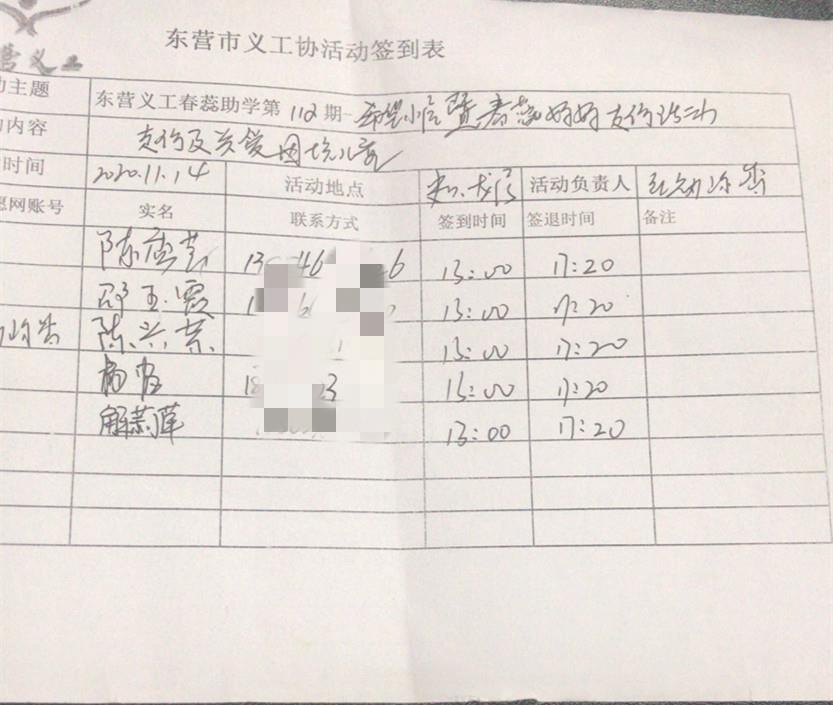 营义工
东营市义工协活动签到表
动主题 东营义工春蕾助学第112期-希望小屋暨春蕾 走访活动
内容 走访及关爱困境儿童
时间 2020.11.14 活动地点 活动负责人
愿网账号 实名 联系方式 签到时间 签退时间 备注
陈 13 46 6 13:00 17:20
邵玉霞 1 6 13:00 17:20
陈兴荣 13:00 17:20
杨 18 23 13:00 17:20
解 莲 13:00 17:20